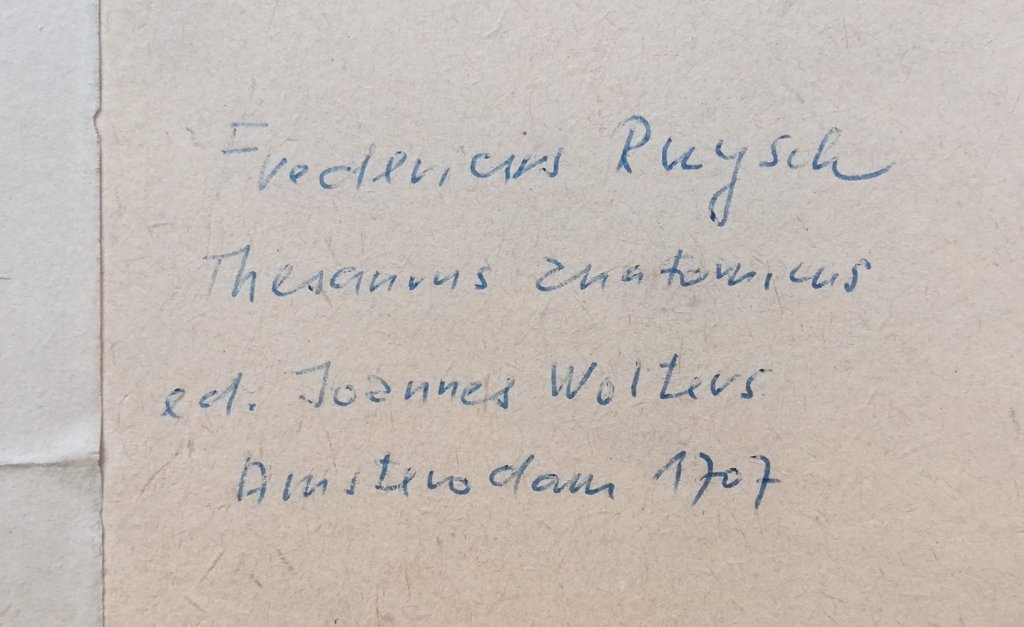 Fredericus Ruysch
Thesaurus anatomicus
ed. Joannes Wolters
Amsterodam 1707